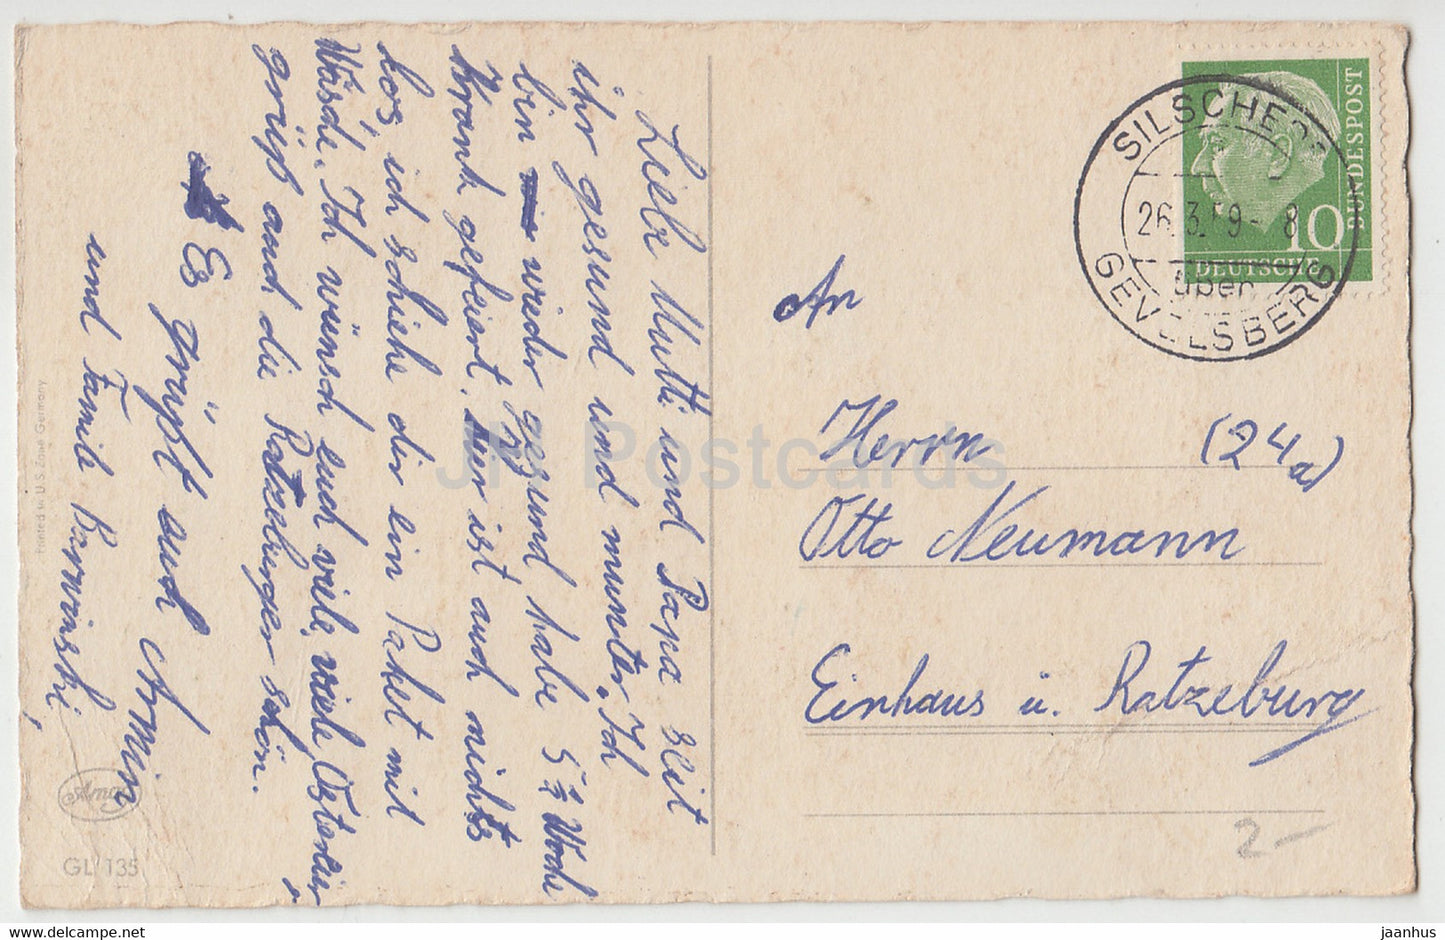 Liebe Mutti und Papa seit
ihr gesund und munter. Ich
bin wieder gesund habe 5 2/2 Woche
Krank gefeiert. Hier ist auch nichts
los, ich schicke dir ein Paket mit
Wäsche. Ich wünsch euch viele, viele Ostereier
grüßt auch die Ratzeburger schön.
Es grüßt auch Armin
und Familie Barwinski,
Printed in U.S. Zone Germany
Amag
GL 135
SILSCHEDE
26.3.59-8
über
GEVELSBERG
DEUTSCHE
BUNDESPOST
10
An
Herrn (24a)
Otto Neumann
Einhaus ü. Ratzeburg
2-
JH Postcards
jaanhus
www.delcampe.net